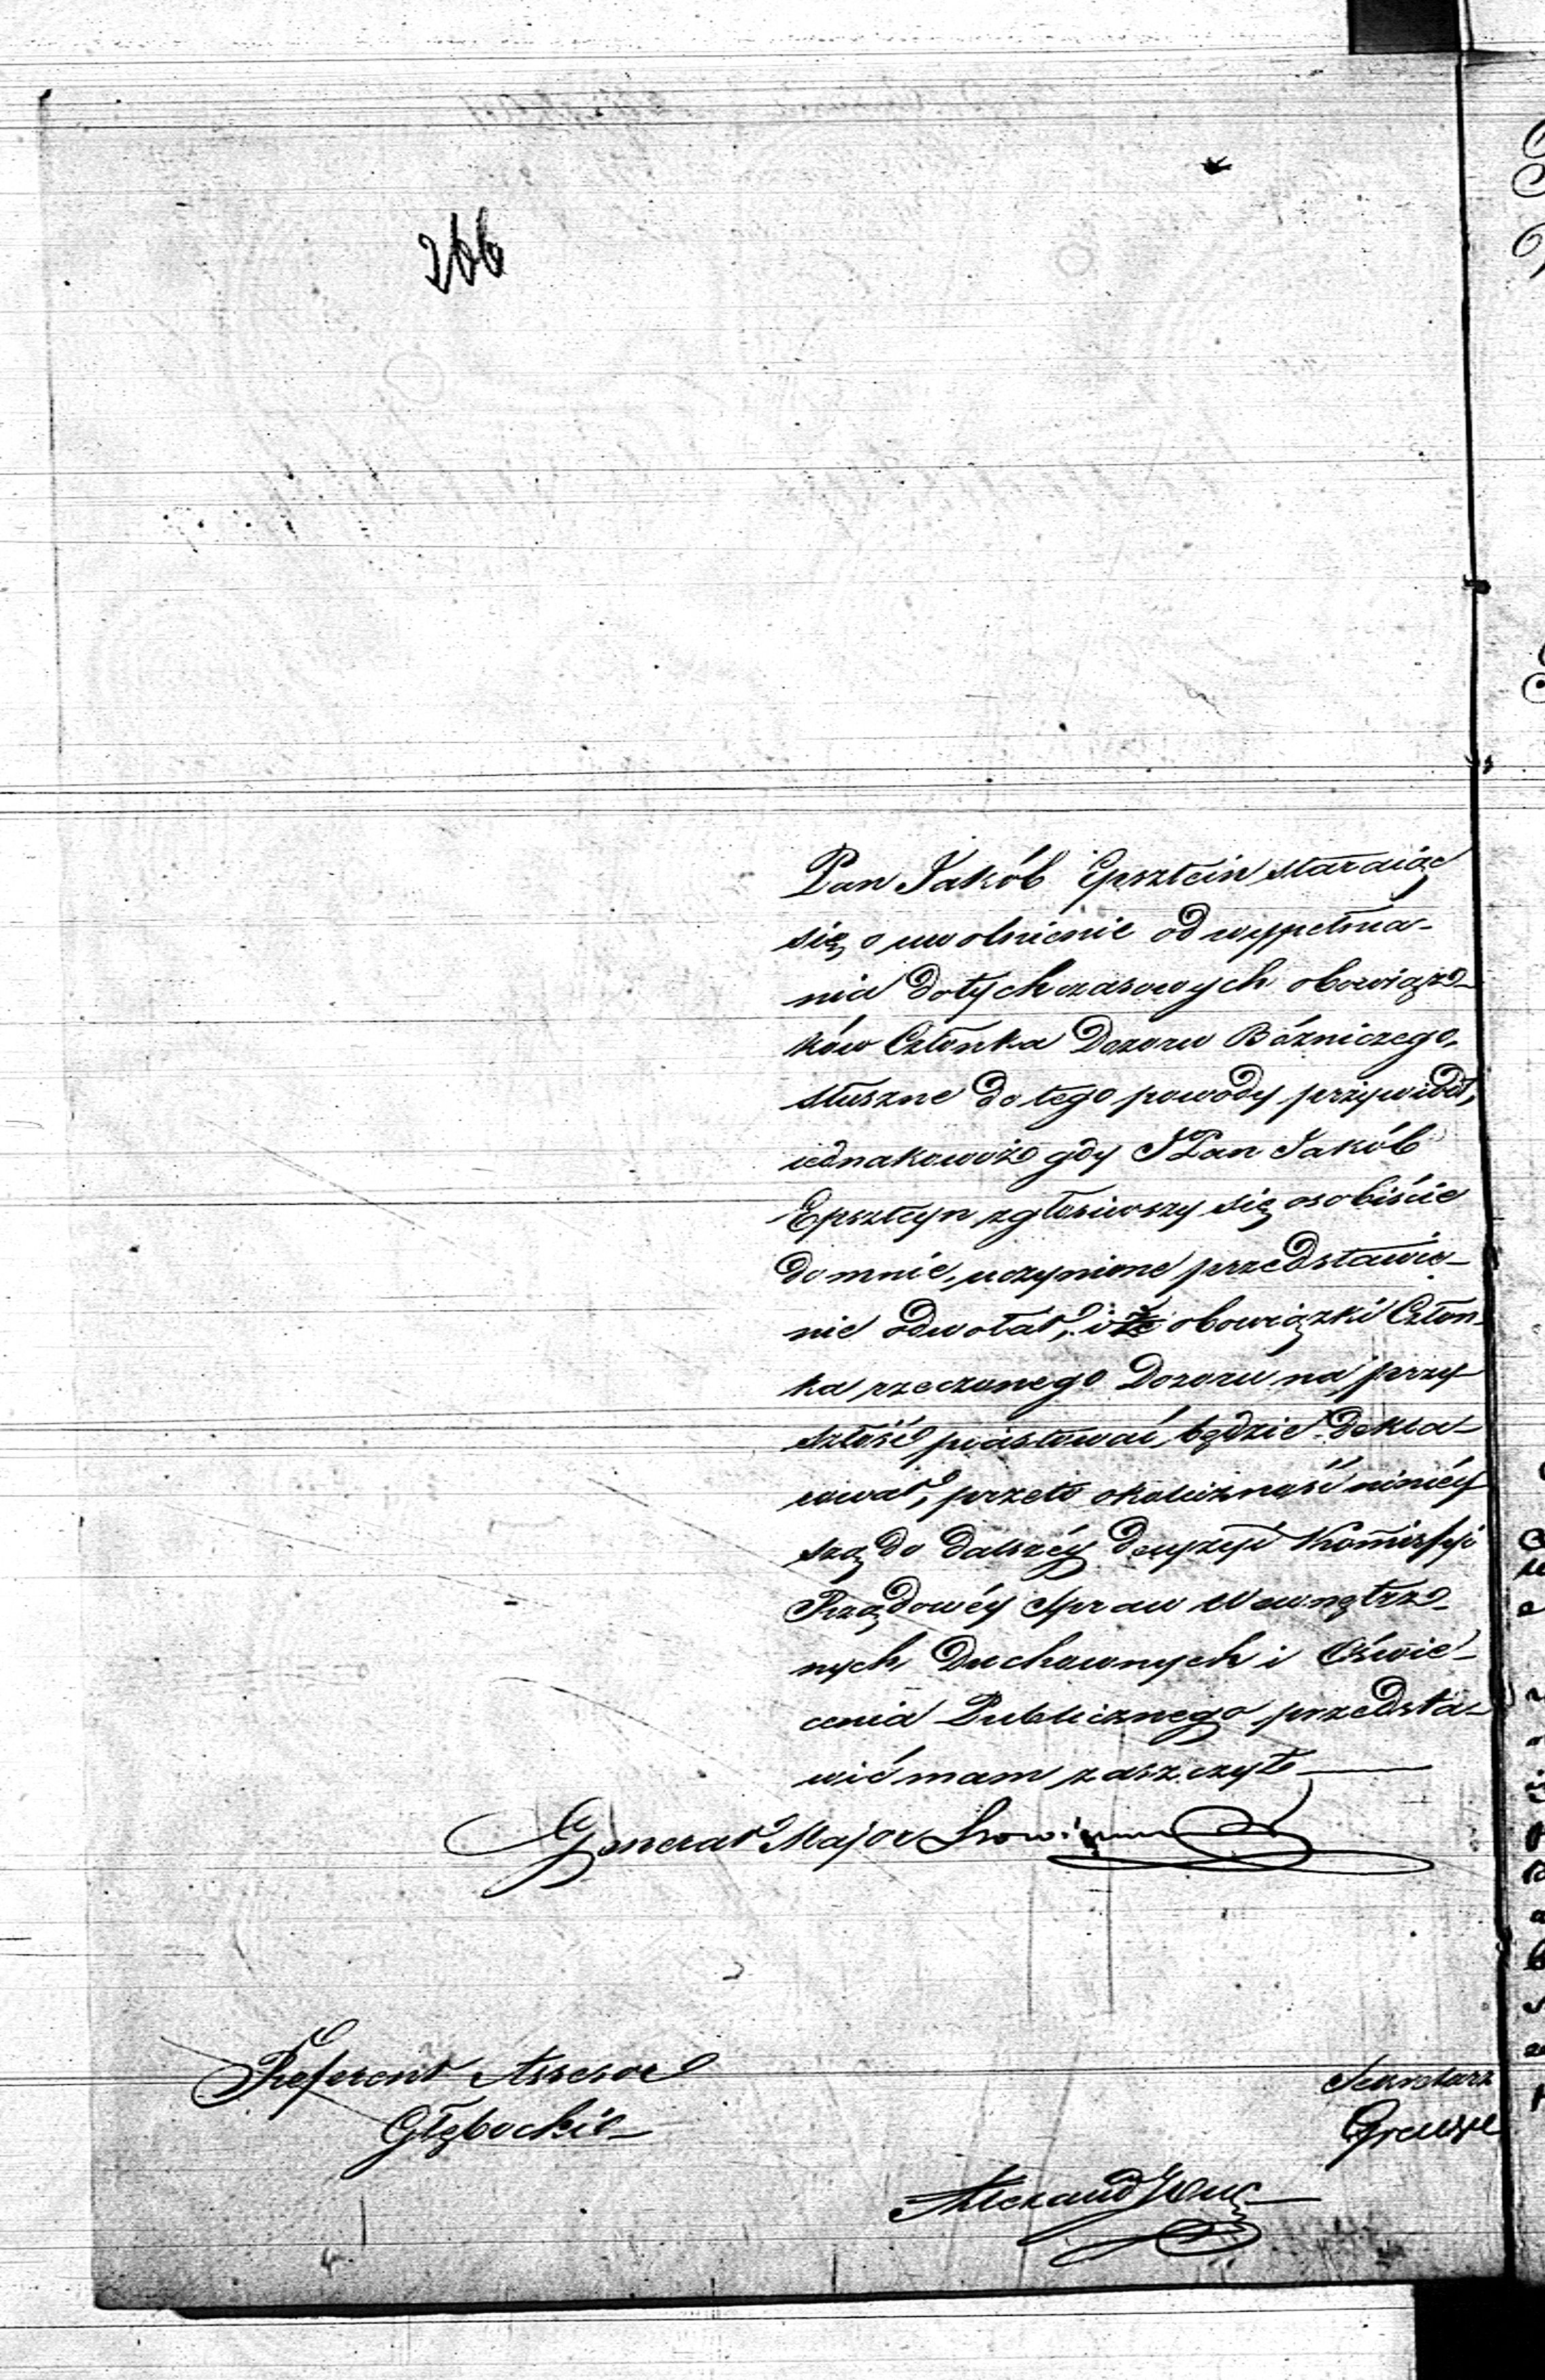 266
Pan Jakób Epsztein staraiąc
się o uwolnienie od wypełnia-
nia dotychczasowych obowiąz-
ków Członka Dozoru Bóżniczego,
słuszne do tego powody przywiódł,
iednakowoż gdy JPan Jakób
Epszteyn zgłosiwszy się osobiście
do mnie, uczynione przedstawie-
nie odwołał, i że obowiązki Człon-
ka rzeczonego Dozoru na przy-
szłość piastować będzie dekla-
rował, przeto okoliczność niniey
szą do dalszéy decyzyi Kommissyi
Rządowéy Spraw Wewnętrz-
nych Duchownych i Oświe-
cenia Publicznego przedsta-
wić mam zaszczyt
Generał Major
Referent Assesor
Głębocki
Sekretarz